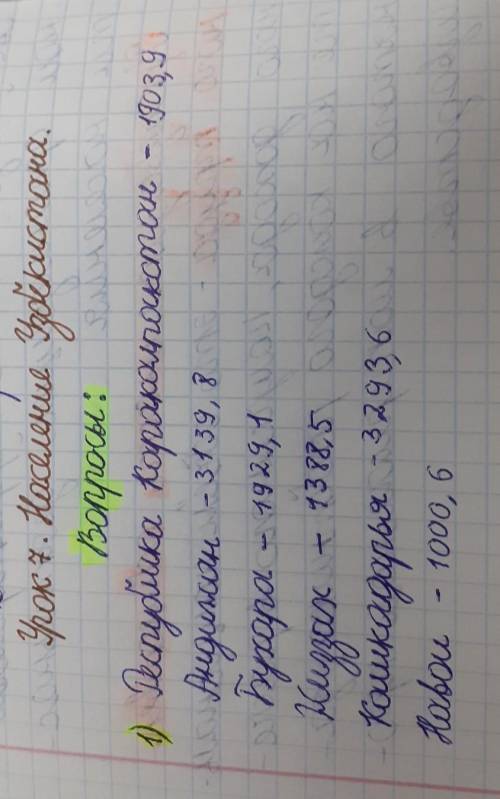 Урок 7. Население Узбекистана.
Вопросы:
1) Республика Каракалпакстан - 1903,9
Андижан - 3139,8
Бухара - 1929,1
Жиззах - 1388,5
Кашкадарья - 3293,6
Навои - 1000,6